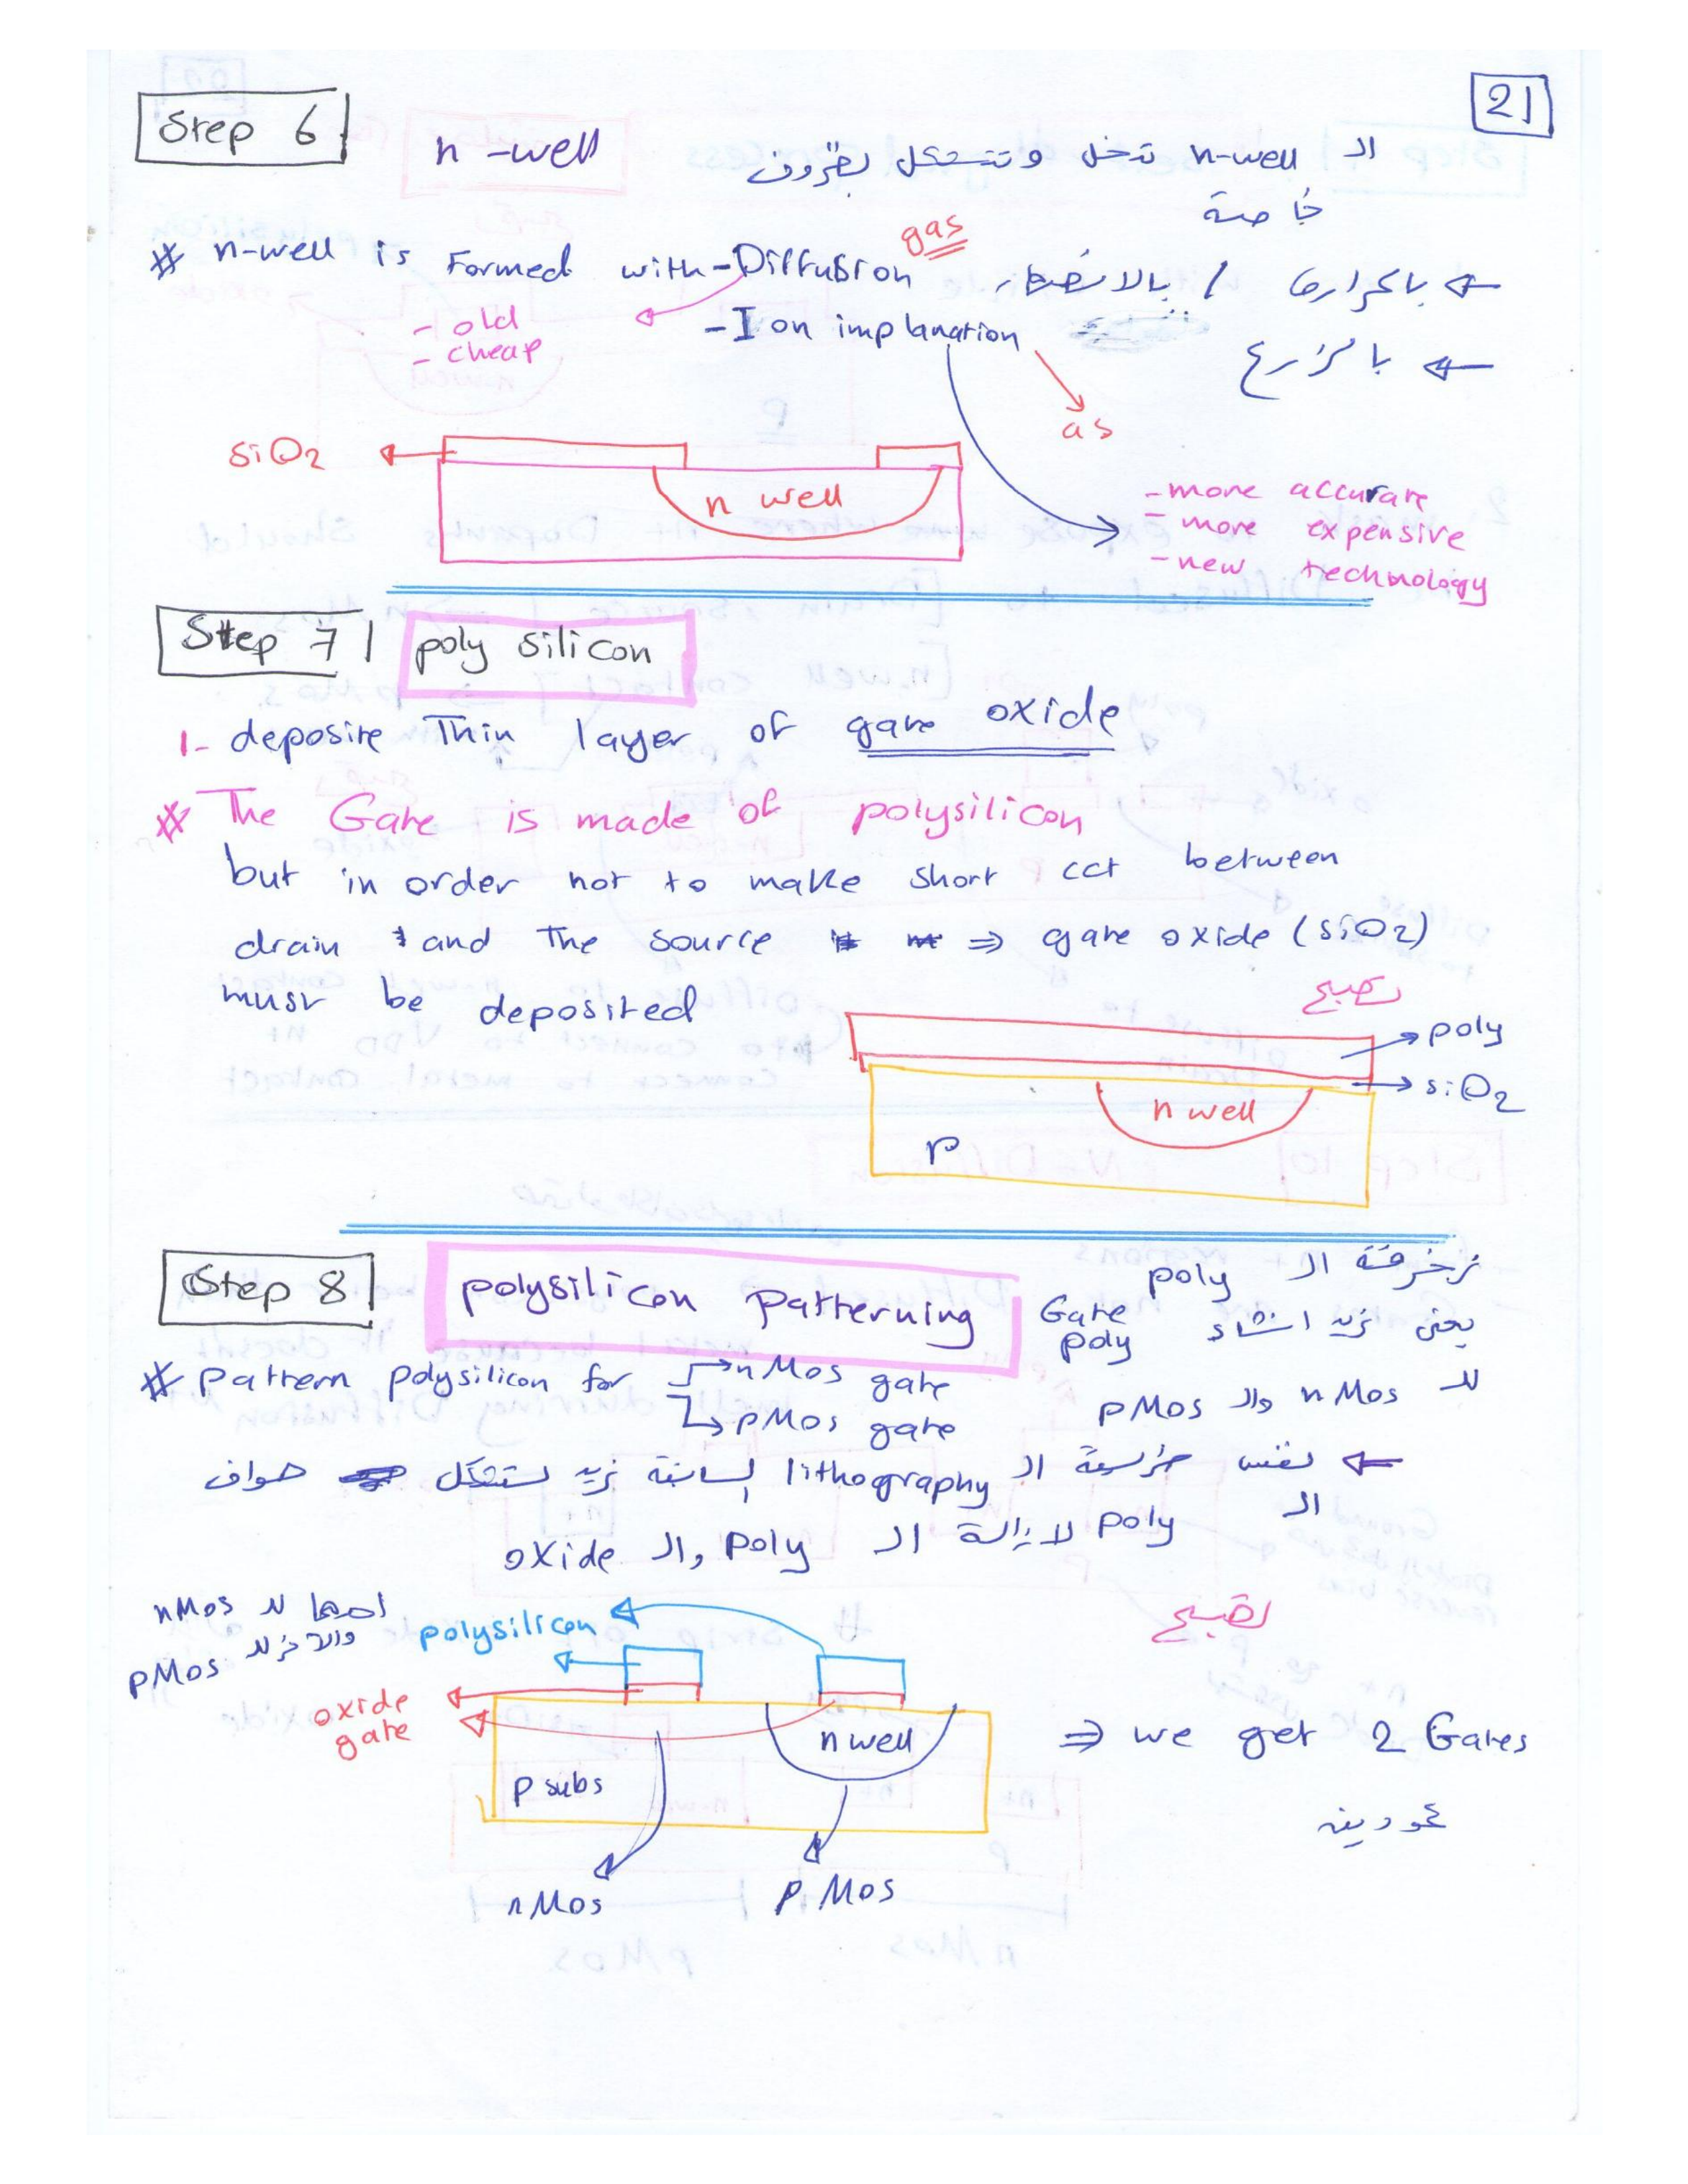 21
Step 6
n-well
الـ n-well تدخل وتتشكل بظروف
خاصة
# n-well is Formed with - Diffusion gas
← بالحرارة / بالانتشار
- old
- cheap
- Ion implanation
← بالزرع
as
SiO2
n well
- more accurate
- more expensive
- new technology
Step 7
poly silicon
1- deposite Thin layer of gate oxide
# The Gate is made of polysilicon
but in order not to make short cct between
drain and The source ⇒ gate oxide (SiO2)
must be deposited
تصبح
poly
SiO2
n well
P
Step 8
polysilicon Patterning
زخرفة الـ poly
يعني نريد انشاء Gate poly
للـ nMos والـ pMos
# Pattern polysilicon for → nMos gate
↳ pMos gate
← نفس الـ lithography السابقة نريد حواف
الـ poly لازالة الـ poly والـ oxide
تصبح
احدها للـ nMos
والاخر للـ
pMos
polysilicon
oxide
gate
n well
p subs
⇒ we get 2 Gates
عمودين
nMos
pMos